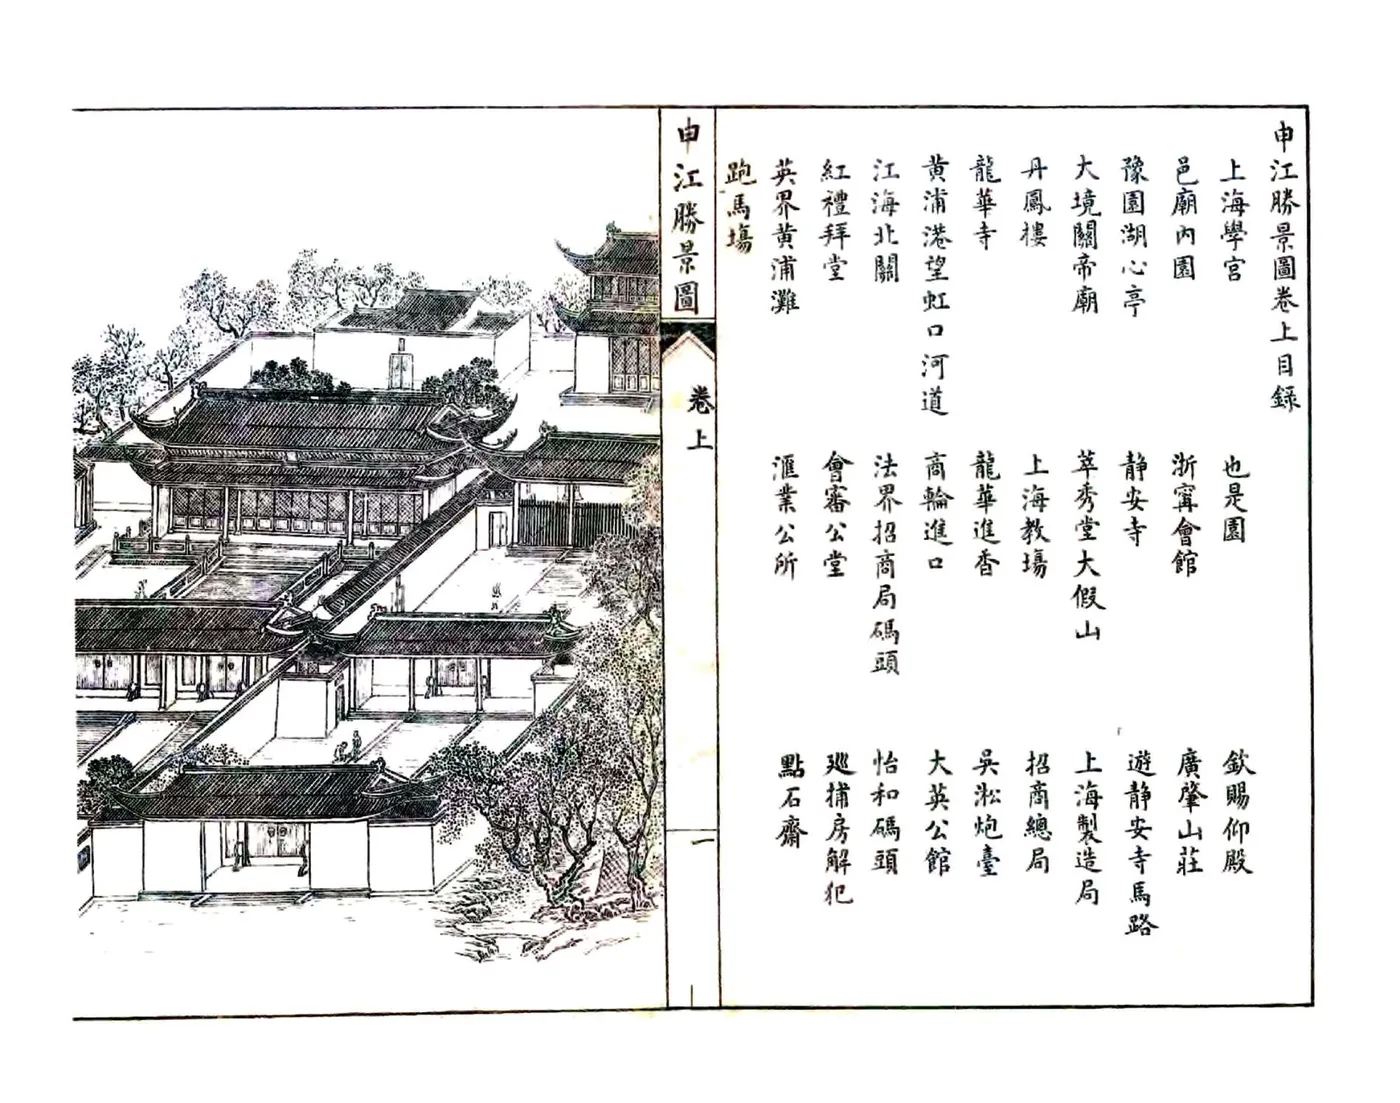 申江勝景圖卷上目録
上海學宮 也是園 欽賜仰殿
邑廟內園 浙寗會館 廣肇山莊
豫園湖心亭 静安寺 遊静安寺馬路
大境關帝廟 萃秀堂大假山 上海製造局
丹鳳樓 上海教塲 招商總局
龍華寺 龍華進香 吳淞炮臺
黄浦港望虹口河道 商輪進口 大英公館
江海北關 法界招商局碼頭 怡和碼頭
紅禮拜堂 會審公堂 廵捕房解犯
英界黄浦灘 滙業公所 點石齋
跑馬塲
申江勝景圖
卷上
一